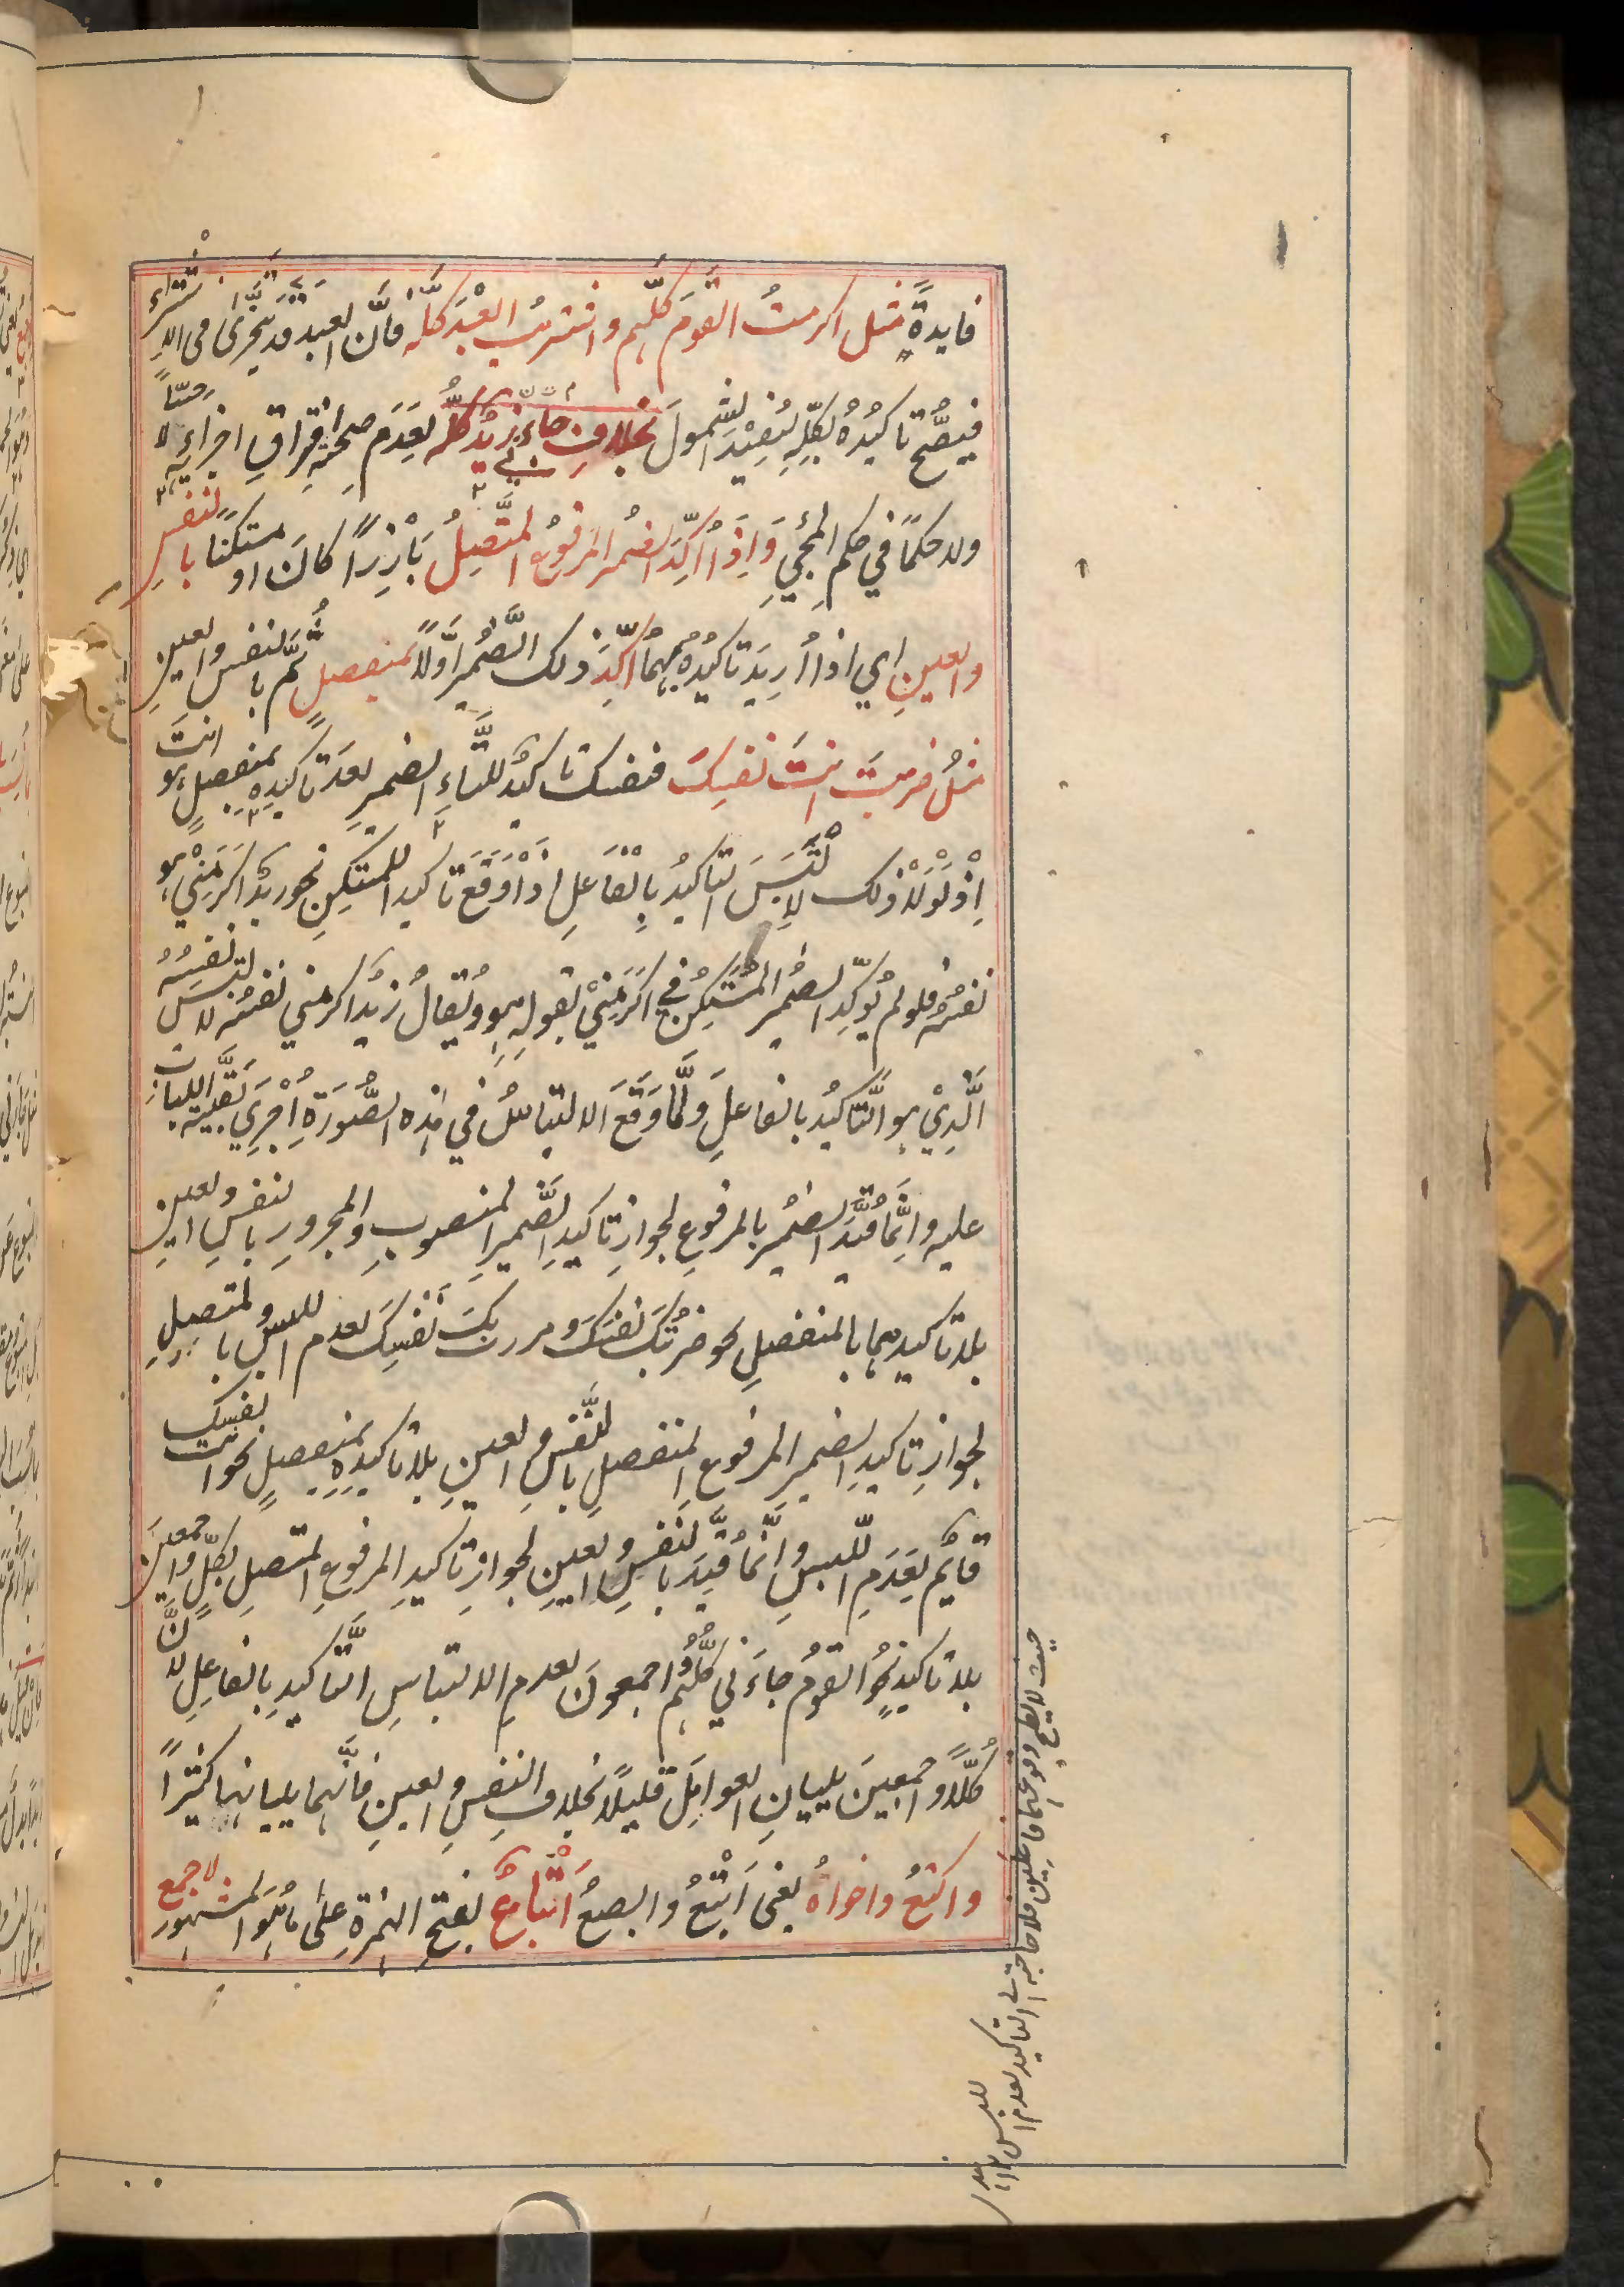 فايدةٌ مثل اكرمتُ القومَ كلّهم واشتريتُ العبْدَ كلّه فانَّ العبدَ قد يتجزّى فى الاشتراءِ
فيصُّح تاكيدُه بكلِّه ليُفِيْدَ الشمولَ بخلافِ جاءَ زيدٌ كلُّه لِعَدَم صحةِ افتراقِ اجزاءِه لا حِسّاً
ولا حكماً في حكم المجيِ وَاِذَا اُكِّدَ الضميرُ المرفوعُ المتَّصِلُ بَارِزاً كانَ او مستكنًا بالنفسِ
والعينِ اي اذا اُرِيدَ تاكيدُه بهما اُكِّدَ ذلك الضَّميرُ اوَّلاً بمنفصلٍ ثُمَّ بالنفس والعينِ
مثلُ ضربتَ انتَ نفسُكَ فنفسك تاكيدٌ للتَّاءِ الضميرِ بعدَ تاكيدِه بمنفصلٍ هو انتَ
اِذْ لَوْلَا ذلك لَالْتَبَسَ التاكيدُ بِالْفَاعلِ اذا وَقَعَ تاكيدا للمستكِنِ نحو زيدٌ اكرَمَنِيْ هو
نفسُه فلو لم يُوكّدِ الضميرُ المُسْتَكِنُ في اكرَمَنِيْ بقولِه هو ويُقالُ زيدٌ اكرمني نفسُه لالتبس نَفسُهُ
الَّذِيْ هو التَّاكيدُ بالفاعلِ ولَمَّا وَقَعَ الالتباسُ في هذه الصُّورَةِ اُجْرِيَ بقيّةُ البابِ
عليه وانَّما قُيّدَ الضميرُ بالمرفوعِ لجوازِ تاكيدِ الضَّميرِ المنصوبِ والمجرورِ بالنفسِ والعينِ
بلا تاكيدِهما بالمنفصلِ نحو ضربْتُكَ نفسَكَ ومررتُ بكَ نَفْسِكَ لعدم اللبس وبالمتصِلِ
لجوازِ تاكيدِ الضميرِ المرفوعِ المنفصلِ بالنَّفسِ والعينِ بلا تاكيدِه بمنفصلٍ نحو انتَ نفسُكَ
قايُم لِعَدَمِ اللّبسِ وانَّما قُيّدَ بالنَّفسِ والعينِ لجوازِ تاكيدِ المرفوعِ المتصلِ بكلٍّ واجمعينَ
بلا تاكيدٍ نحوُ القومُ جاءَني كلُّهُم واجمعونَ لعدمِ الالتباسِ التَّاكيدِ بالفاعلِ لانَّ
كُلّاً واجمعِينَ يليانِ العوامِلَ قليلاً بخلافِ النفسِ والعينِ فانَّهما يليانها كثيراً
واكتعُ واخواهُ يعنى اَبْتَعُ وابصعُ اَتْبَاعٌ بفتحِ الهمزةِ على ما هو المشهور لاجمع
حيث لا يصح وقوعهما فاعلين فلا حاجة الى التاكيد لعدم اللبس ١٢